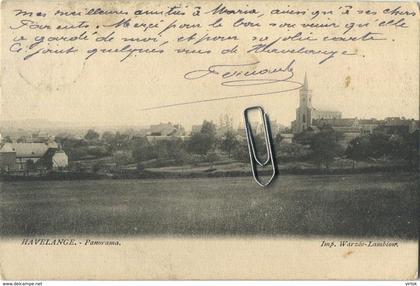 mes meilleures amitiés à Maria ainsi qu'à ses cher
Parents - Merci pour le bon souvenir qu'elle
a gardé de moi, et pour sa jolie carte
Ci joint quelques vues de Havelange.
Fernande
HAVELANGE. - Panorama.
Imp. Warzée-Lambion.